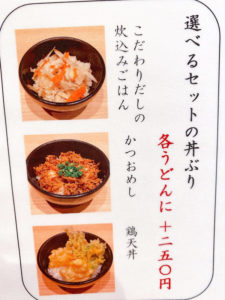 選べるセットの丼ぶり
各うどんに＋二五〇円
こだわりだしの
炊込みごはん
かつおめし
鶏天丼